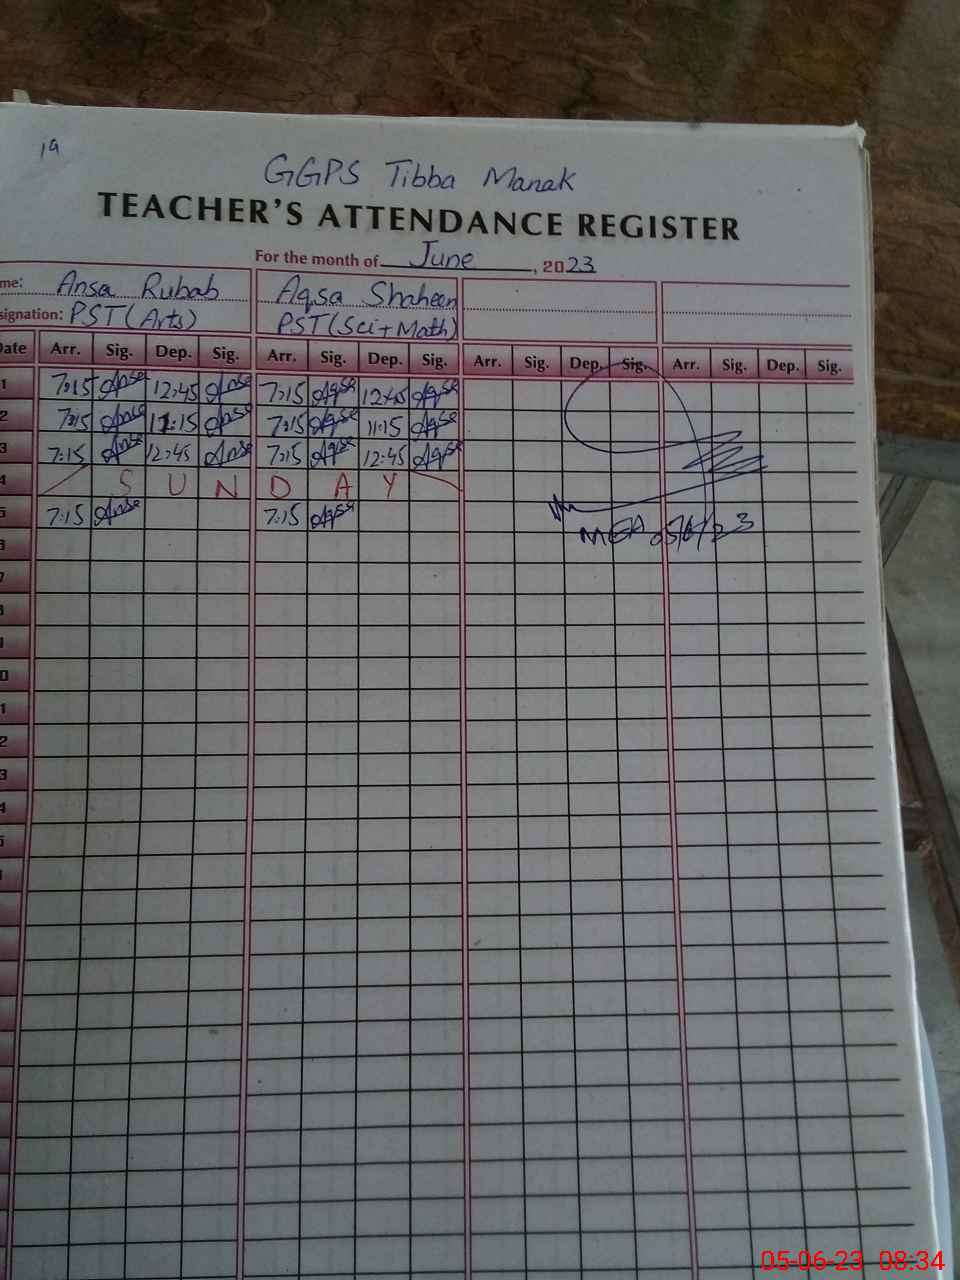 19
GGPS Tibba Manak
TEACHER'S ATTENDANCE REGISTER
For the month of June, 2023
me: Ansa Rubab Aqsa Shaheen
signation: PST(Arts) PST(Sci+Math)
Date Arr. Sig. Dep. Sig. Arr. Sig. Dep. Sig. Arr. Sig. Dep. Sig. Arr. Sig. Dep. Sig.
1 7:15 Ansa 12:45 Ansa 7:15 Aqsa 12:45 Aqsa
2 7:15 Ansa 11:15 Ansa 7:15 Aqsa 11:15 Aqsa
3 7:15 Ansa 12:45 Ansa 7:15 Aqsa 12:45 Aqsa
4 SUNDAY
5 7:15 Ansa 7:15 Aqsa
MEA 05/6/23
6
7
8
9
0
1
2
3
4
5
05-06-23 08:34